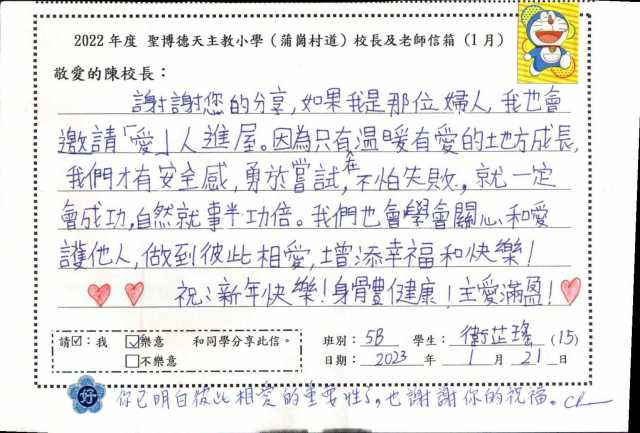 2022年度 聖博德天主教小學（蒲崗村道）校長及老師信箱（1月）
敬愛的陳校長：
謝謝您的分享,如果我是那位婦人,我也會
邀請「愛」人進屋。因為只有溫暖有愛的地方成長,
我們才有安全感,勇於嘗試,在不怕失敗,就一定
會成功,自然就事半功倍。我們也會學會關心和愛
護他人,做到彼此相愛,增添幸福和快樂!
祝:新年快樂!身體健康!主愛滿盈!
請☑：我 ☑樂意 和同學分享此信。
□不樂意
班別：5B 學生：衛芷瑤 (15)
日期：2023年1月21日
好 你已明白彼此相愛的重要性了,也謝謝你的祝福。